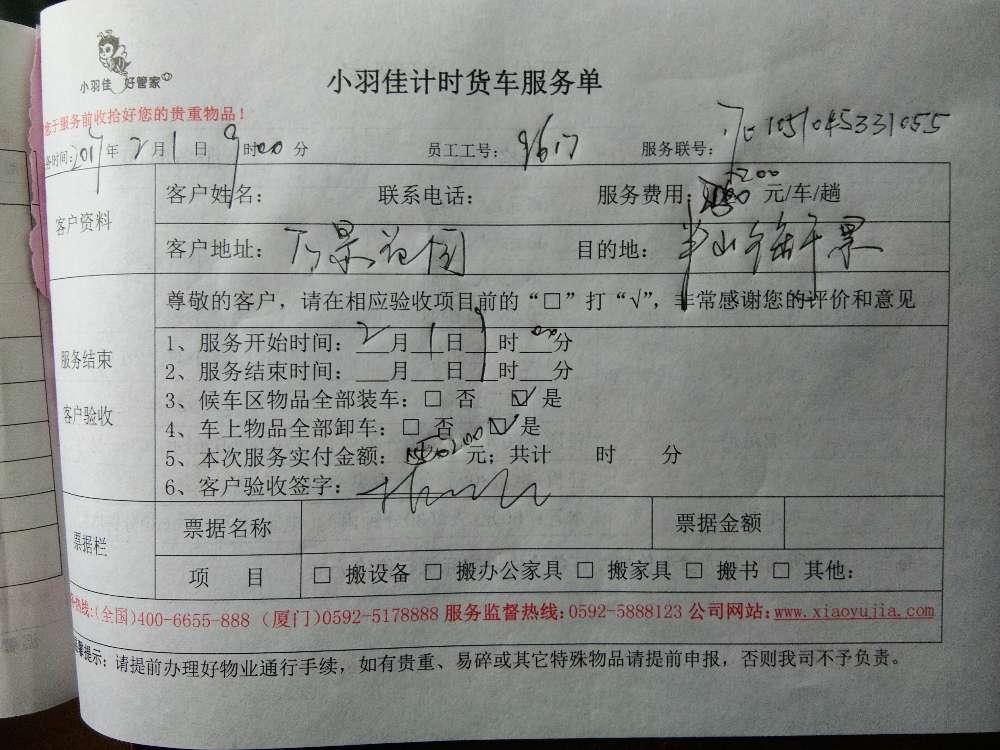 小羽佳 好管家
小羽佳计时货车服务单
于服务前收拾好您的贵重物品！
务时间：2019年2月1日9时00分 员工工号：9617 服务联号：
客户资料
客户姓名： 联系电话： 服务费用：200元/车/趟
客户地址：万景花园 目的地：
尊敬的客户，请在相应验收项目前的“□”打“√”，非常感谢您的评价和意见
服务结束
客户验收
1、服务开始时间：2月1日9时00分
2、服务结束时间：___月___日___时___分
3、候车区物品全部装车：□ 否 ☑ 是
4、车上物品全部卸车：□ 否 ☑ 是
5、本次服务实付金额：200元；共计 时 分
6、客户验收签字：
票据栏
票据名称 票据金额
项 目 □ 搬设备 □ 搬办公家具 □ 搬家具 □ 搬书 □ 其他：
热线：(全国)400-6655-888（厦门)0592-5178888 服务监督热线：0592-5888123 公司网站：www.xiaoyujia.com
提示：请提前办理好物业通行手续，如有贵重、易碎或其它特殊物品请提前申报，否则我司不予负责。